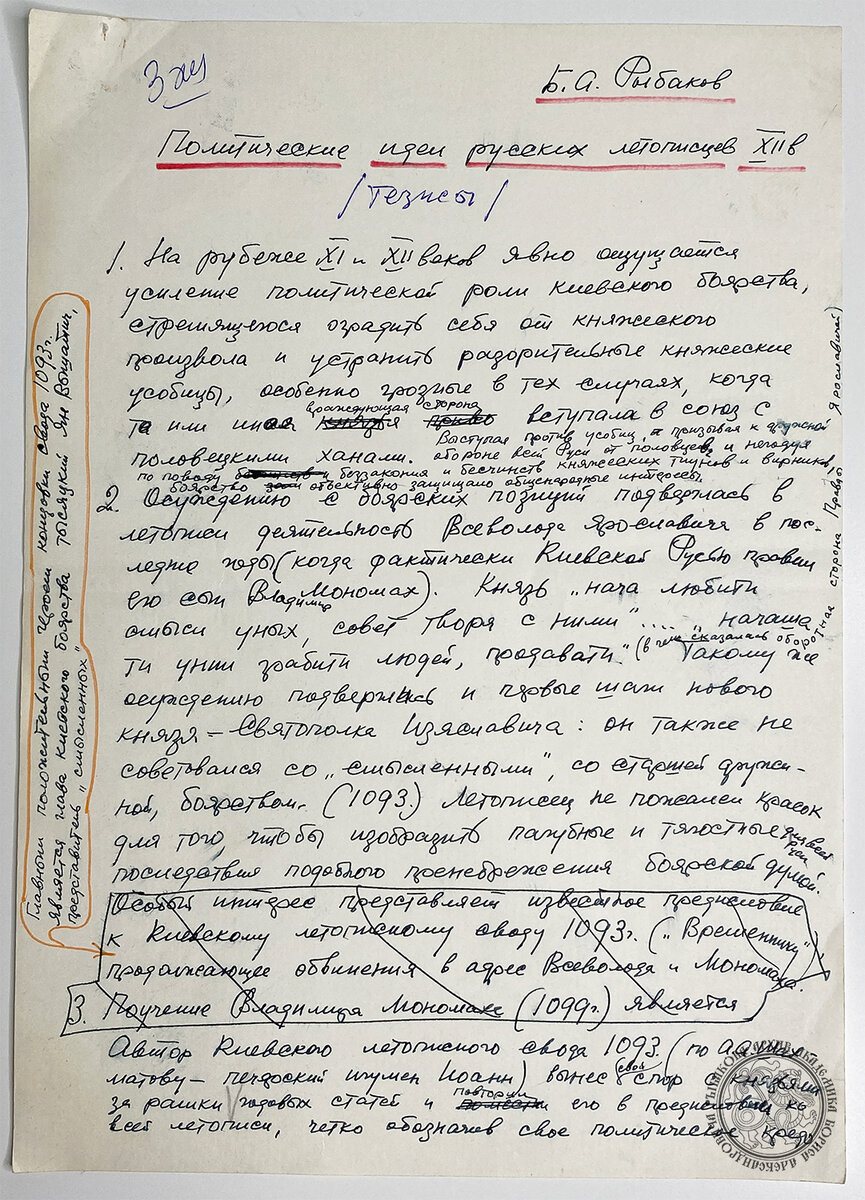 3 экз
Б. А. Рыбаков
Политические идеи русских летописцев XII в
/Тезисы/
1. На рубеже XI и XII веков явно ощущается
усиление политической роли киевского боярства,
стремящегося оградить себя от княжеского
произвола и устранить разорительные княжеские
усобицы, особенно грозные в тех случаях, когда
та или иная враждующая сторона вступала в союз с
половецкими ханами. Выступая против усобиц, призывая к дружной
обороне всей Руси от половцев и негодуя
по поводу беззакония и бесчинств княжеских тиунов и вирников,
боярство объективно защищало общенародные интересы.
2. Осуждению с боярских позиций подверглась в
летописи деятельность Всеволода Ярославича в пос-
ледние годы (когда фактически Киевской Русью правил
его сын Владимир Мономах). Князь "нача любити
смысл уных, совет творя с ними".... "начаша
ти унии грабити людей, продавати". (в чем сказалась оборотная сторона Правды Ярославичей) Такому же
осуждению подверглись и первые шаги нового
князя – Святополка Изяславича: он также не
советовался со "смысленными", со старшей дружи-
ной, боярством. (1093.) Летописец не пожалел красок
для того, чтобы изобразить пагубные и тягостные для всей Руси
последствия подобного пренебрежения боярской думой.
Главным положительным героем концовки свода 1093 г.
является глава киевского боярства тысяцкий Ян Вышатич,
представитель "смысленных"
Особый интерес представляет известное предисловие
к Киевскому летописному своду 1093 г. ("Временнику")
продолжающее обвинения в адрес Всеволода и Мономаха.
3. Поучение Владимира Мономаха (1099 г.) является
Автор Киевского летописного свода 1093. (по А. А. Шах
матову – печерский игумен Иоанн) вынес свой спор с князьями
за рамки годовых статей и повторил его в предисловии ко
всей летописи, четко обозначив свое политическое кредо